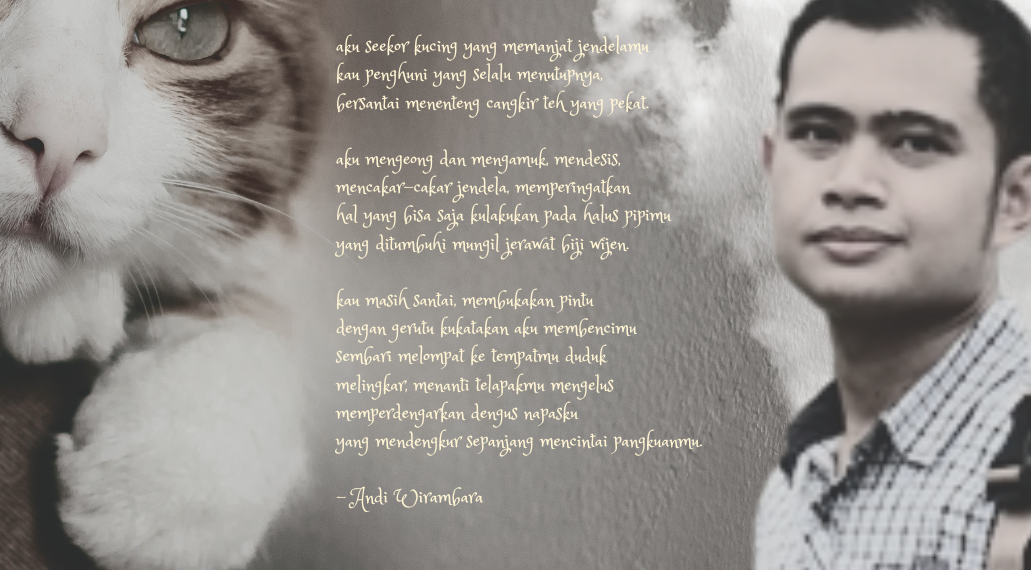 aku seekor kucing yang memanjat jendelamu
kau penghuni yang selalu menutupnya,
bersantai menenteng cangkir teh yang pekat.
aku mengeong dan mengamuk, mendesis,
mencakar-cakar jendela, memperingatkan
hal yang bisa saja kulakukan pada halus pipimu
yang ditumbuhi mungil jerawat biji wijen.
kau masih santai, membukakan pintu
dengan gerutu kukatakan aku membencimu
sembari melompat ke tempatmu duduk
melingkar, menanti telapakmu mengelus
memperdengarkan dengus napasku
yang mendengkur sepanjang mencintai pangkuanmu.
- Andi Wirambara